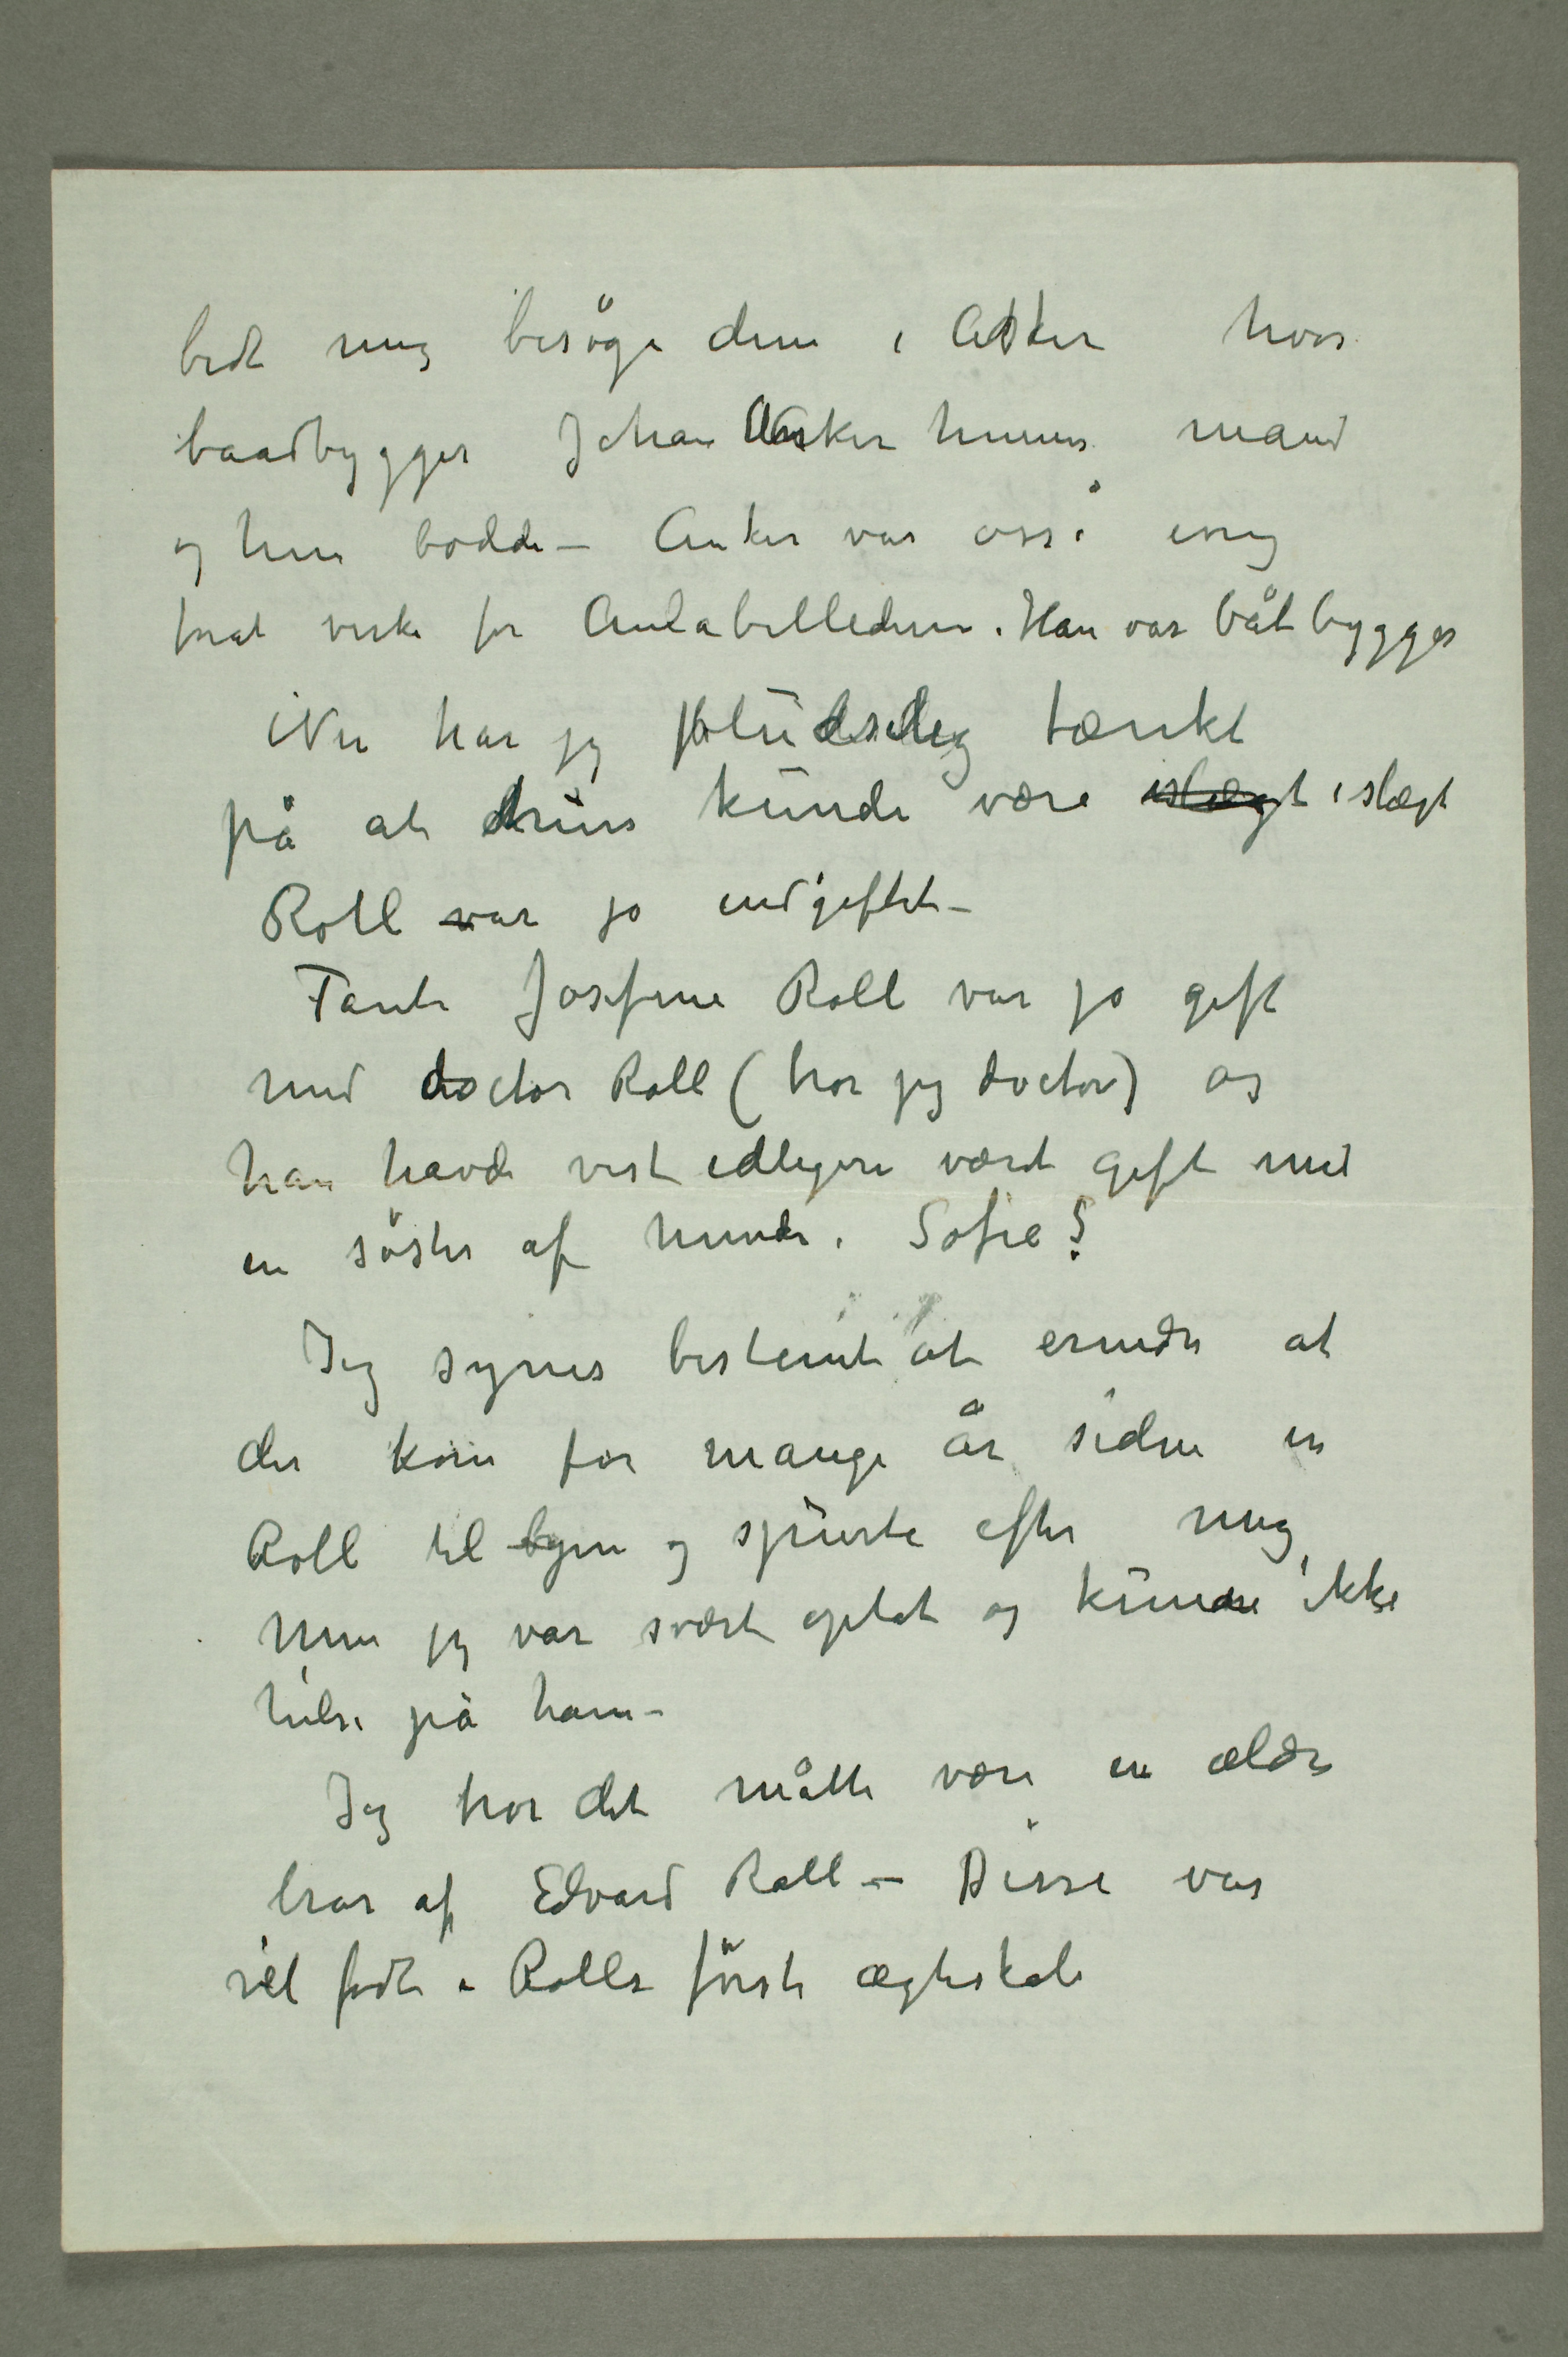 bedt mig besöge dem i Asker hvor
baadbygger Johan Anker hennes mand
og hun bodde – Anker var osså ivrig
forat virke for Aulabillederne. Han var båtbygger
Nu har jeg pludselig tænkt
på at drius kunde være islægt i slægt
Roll var jo indgiftet –
Tante Josefine Roll var jo gift
med doctor Roll (tror jeg doctor) og
han havde vist idligere været gift med
en söster af hende. Sofie?
Jeg synes bestemt at erindre at
der kom for mange år siden en
Roll til byen og spurte efter mig
Men jeg var svært optat og kunde ikke
hilse på ham –
Jeg tror det måtte være en ældre
bror af Edvard Roll – Disse var
vel födt i Rolls förste ægteskab